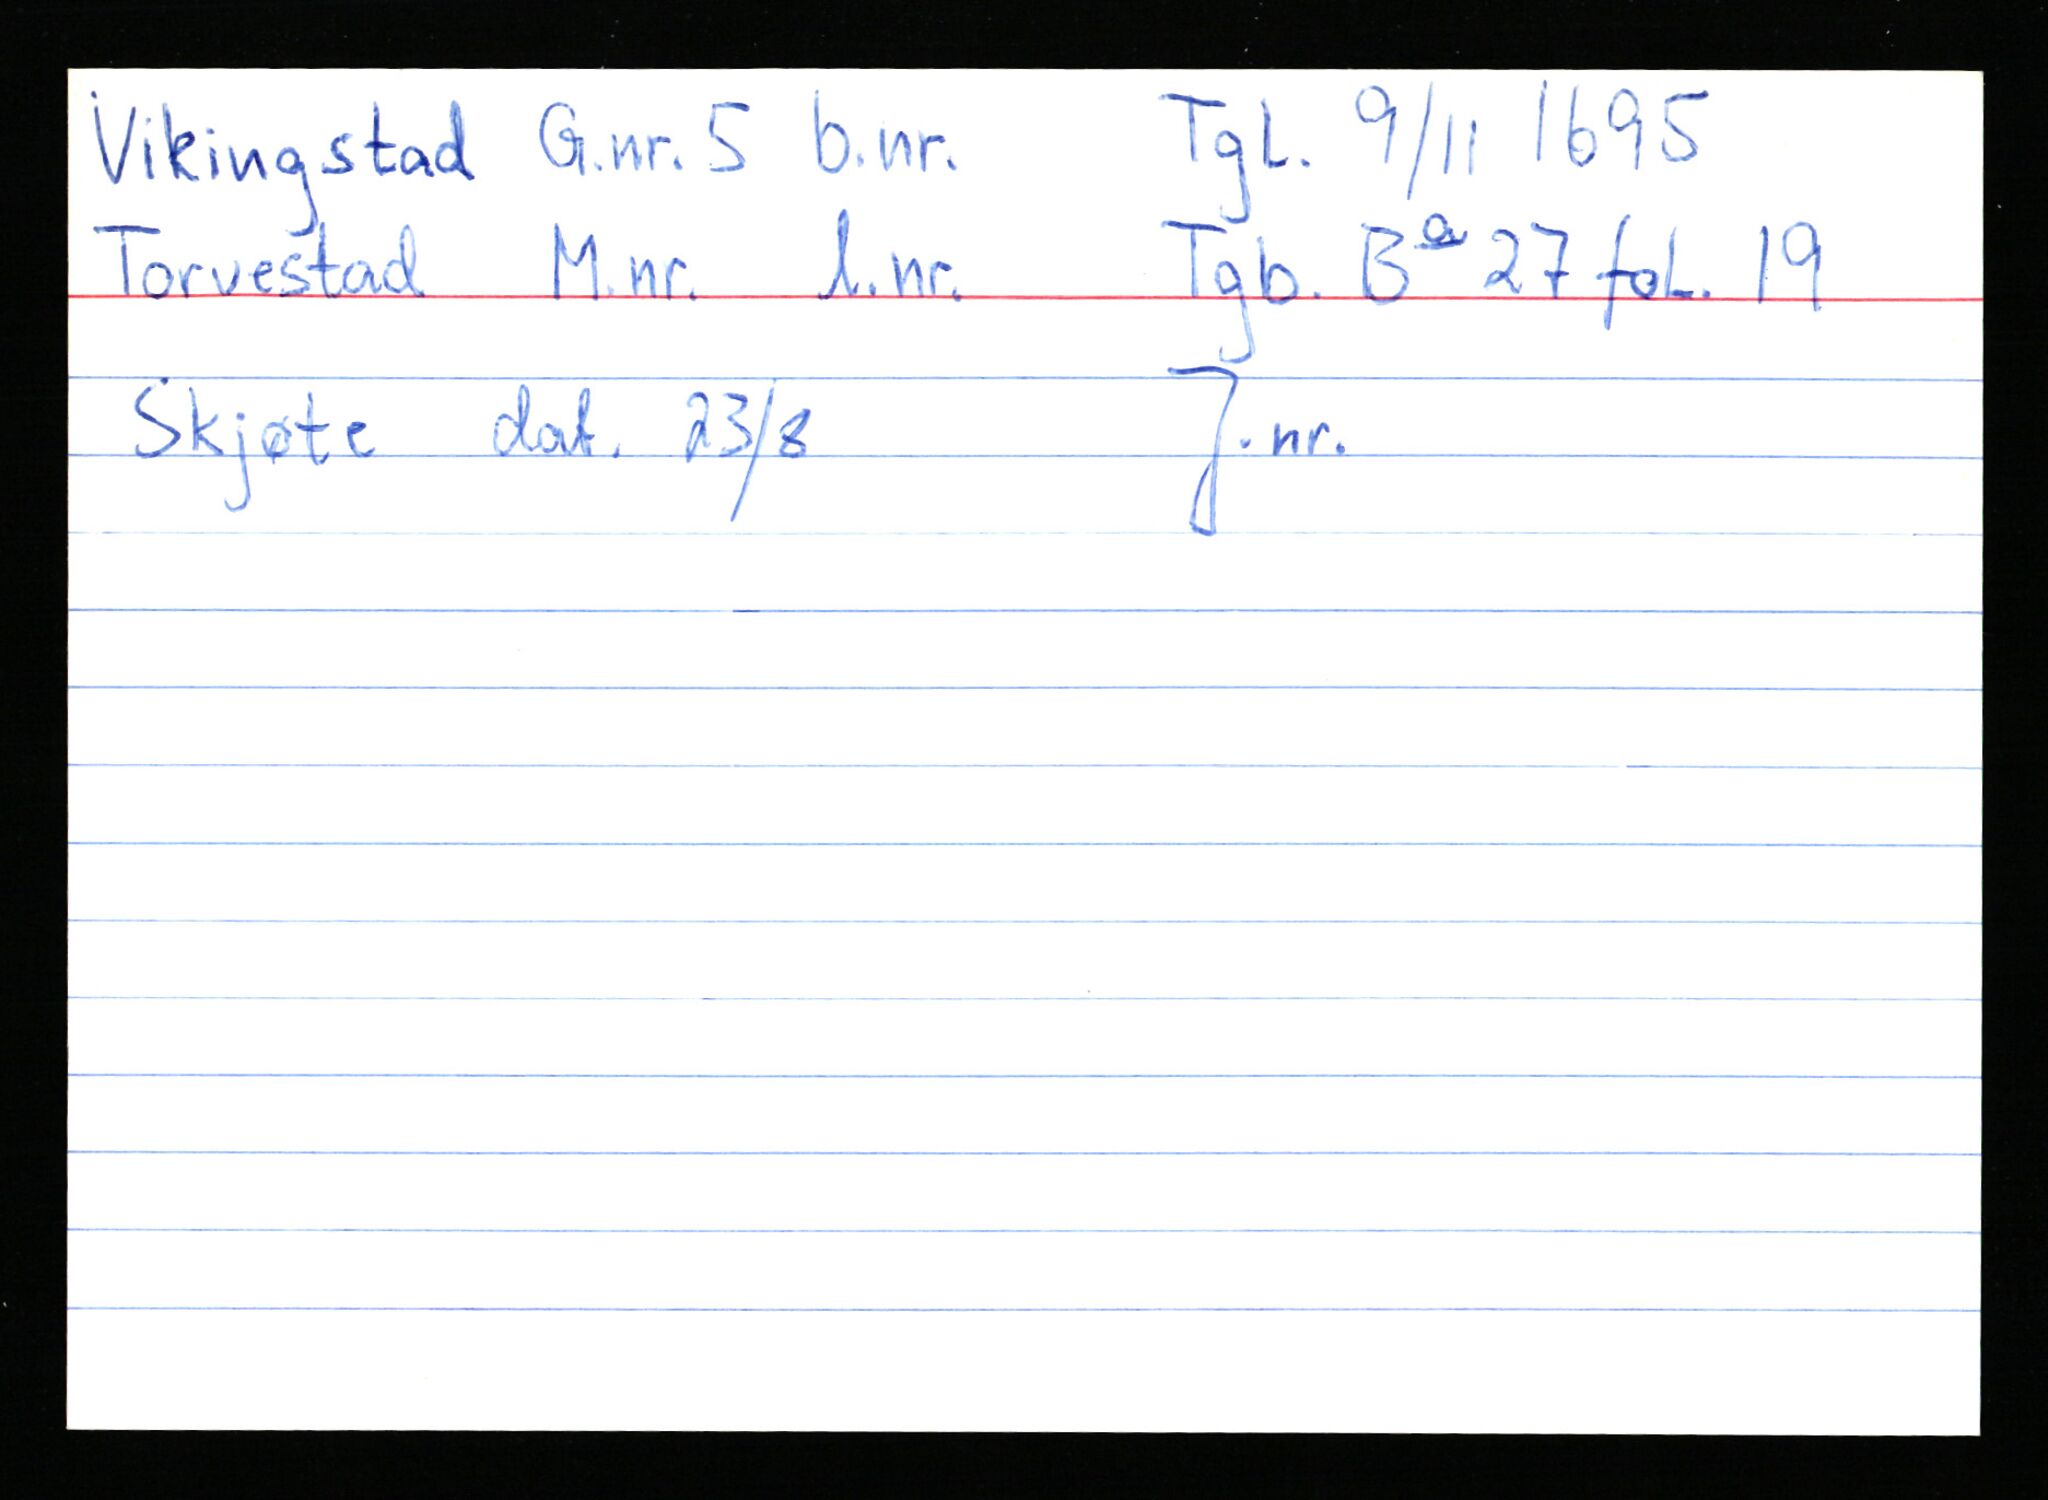 Vikingstad G.nr. 5 b.nr. Tgl. 9/11 1695
Torvestad M.nr. l.nr. Tgb. Ba 27 fol. 19
Skjøte dat. 23/8 J.nr.